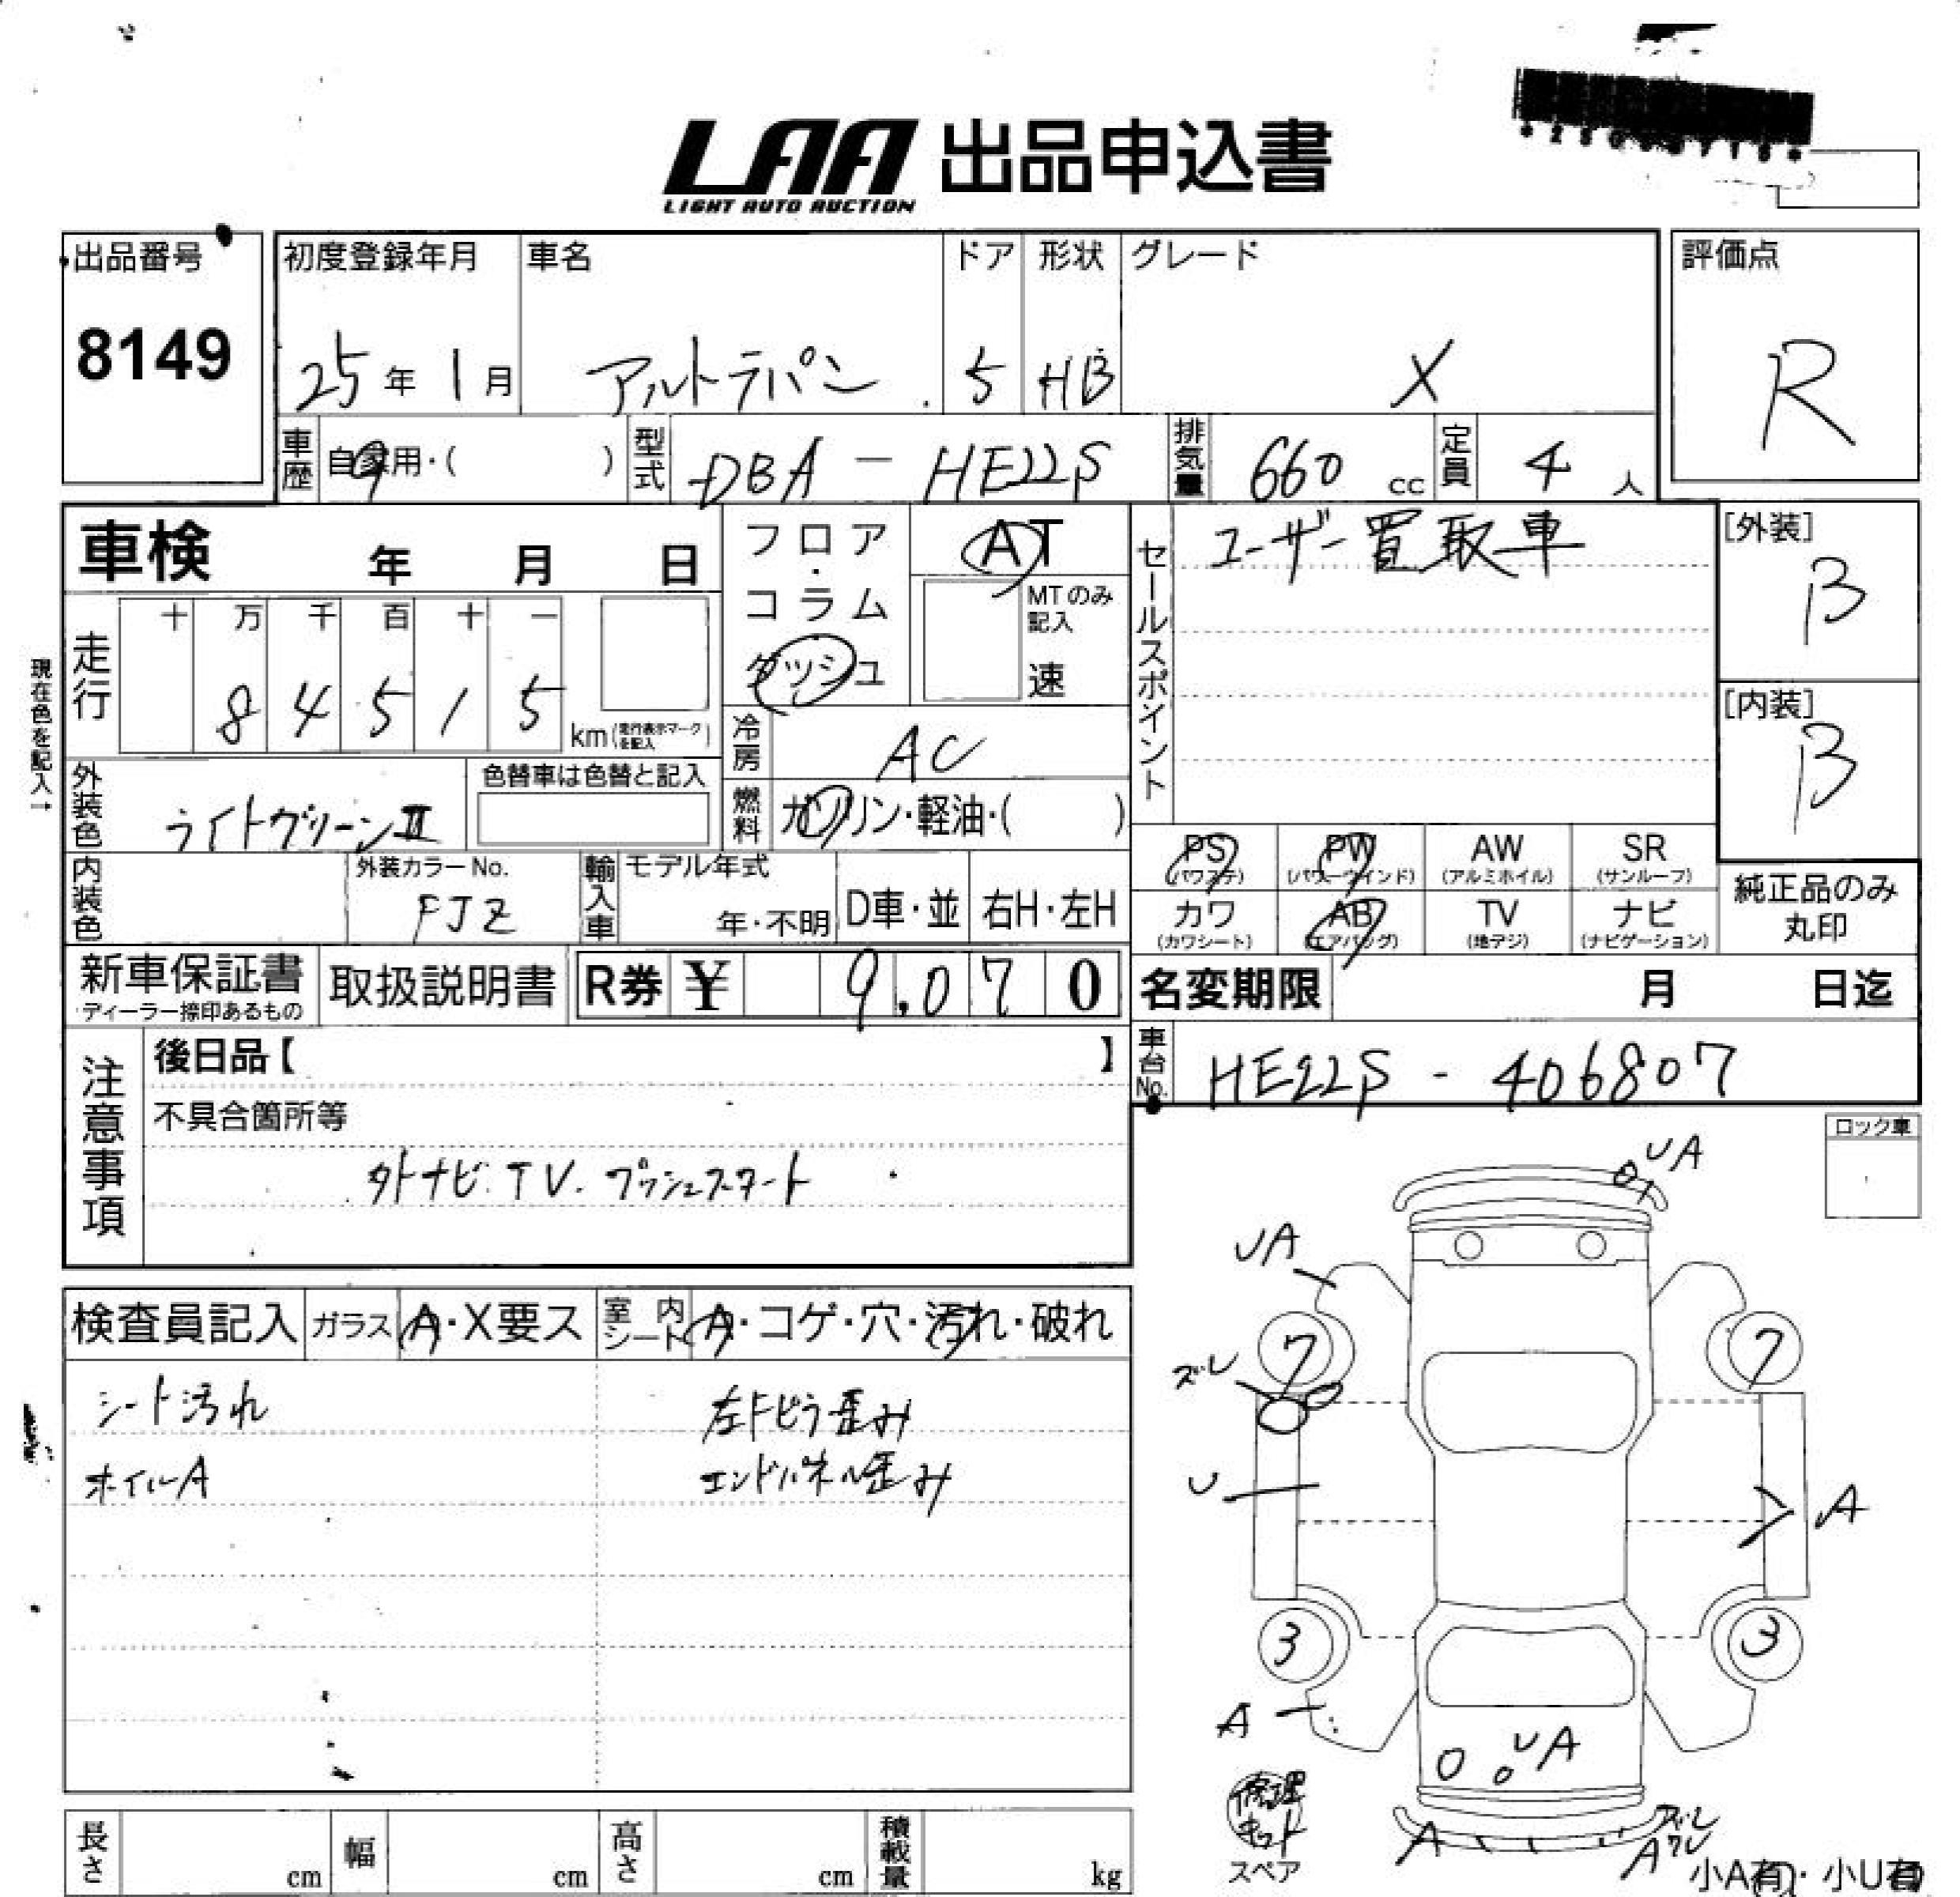 LAA 出品申込書
LIGHT AUTO AUCTION
出品番号
8149
初度登録年月
25年 1月
車名
アルトラパン
ドア
5
形状
HB
グレード
X
評価点
R
車歴
自家用・( )
型式
DBA - HE22S
排気量
660 cc
定員
4 人
車検 年 月 日
フロア・コラム
ダッシュ
AT
MTのみ記入
速
セールスポイント
ユーザー買取車
[外装]
B
[内装]
B
現在色を記入→
走行
十 万 千 百 十 一
8 4 5 1 5
km(走行表示マークを記入)
冷房
AC
外装色
ライトグリーンⅡ
色替車は色替と記入
燃料
ガソリン・軽油・( )
PS
(パワステ)
PW
(パワーウインド)
AW
(アルミホイル)
SR
(サンルーフ)
カワ
(カワシート)
AB
(エアバッグ)
TV
(地デジ)
ナビ
(ナビゲーション)
純正品のみ
丸印
内装色
外装カラーNo.
PJZ
輸入車
モデル年式
年・不明
D車・並
右H・左H
新車保証書
ディーラー捺印あるもの
取扱説明書
R券 ¥ 9,070
名変期限 月 日迄
注意事項
後日品【 】
不具合箇所等
外ナビ.TV.プッシュスタート
車台No.
HE22S - 406807
ロック車
検査員記入
ガラス
A・X要ス
室内シート
A・コゲ・穴・汚れ・破れ
シート汚れ
ホイルA
左Fピラ歪み
エンドパネル歪み
UA
UA
7
7
ズレ
U
A
3
3
A
UA
修理キット
スペア
A
ズレ
Aワレ
小A有・小U有
長さ cm
幅 cm
高さ cm
積載量 kg